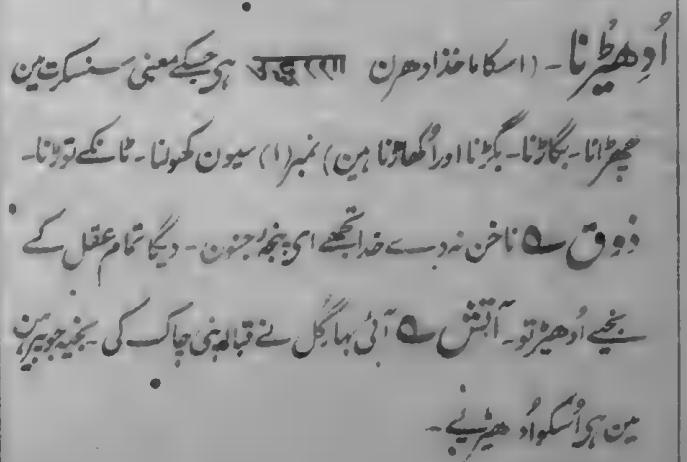 اُدھیڑنا - (اسکا ماخذ ادھرن उद्धरण ہی جسکے معنی سنسکرت مین
چھڑانا - بگاڑنا - بگڑنا اور اُکھاڑنا ہین) نمبر (۱) سیون کھولنا - ٹانکے توڑنا -
ذوق ؎ ناخن نہ دے خدا تجھے ای پنجۂ جنون - دیگا تمام عقل کے
بخیے اُدھیڑ تو - آتش ؎ آئی بہار گل نے قبا اپنی چاک کی - بخیہ جو پیرہن
مین ہی اُسکو اُدھیڑیے -